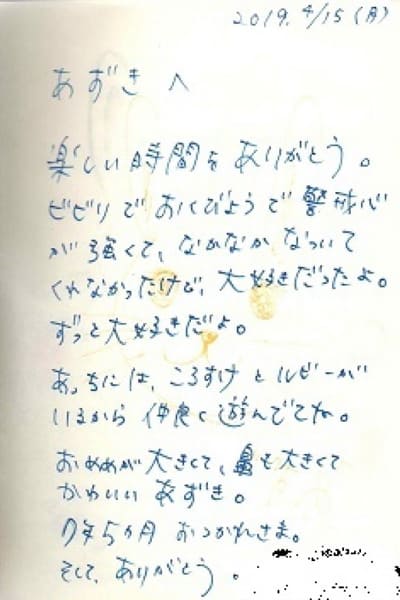 2019. 4/15 (月)
あずきへ
楽しい時間をありがとう。
ビビリでおくびょうで警戒心
が強くて、なかなかなついて
くれなかったけど、大好きだったよ。
ずっと大好きだよ。
あっちには、ころすけとルビーが
いるから仲良く遊んでてね。
おめめが大きくて、鼻も大きくて
かわいいあずき。
7年5カ月 おつかれさま。
そして、ありがとう。